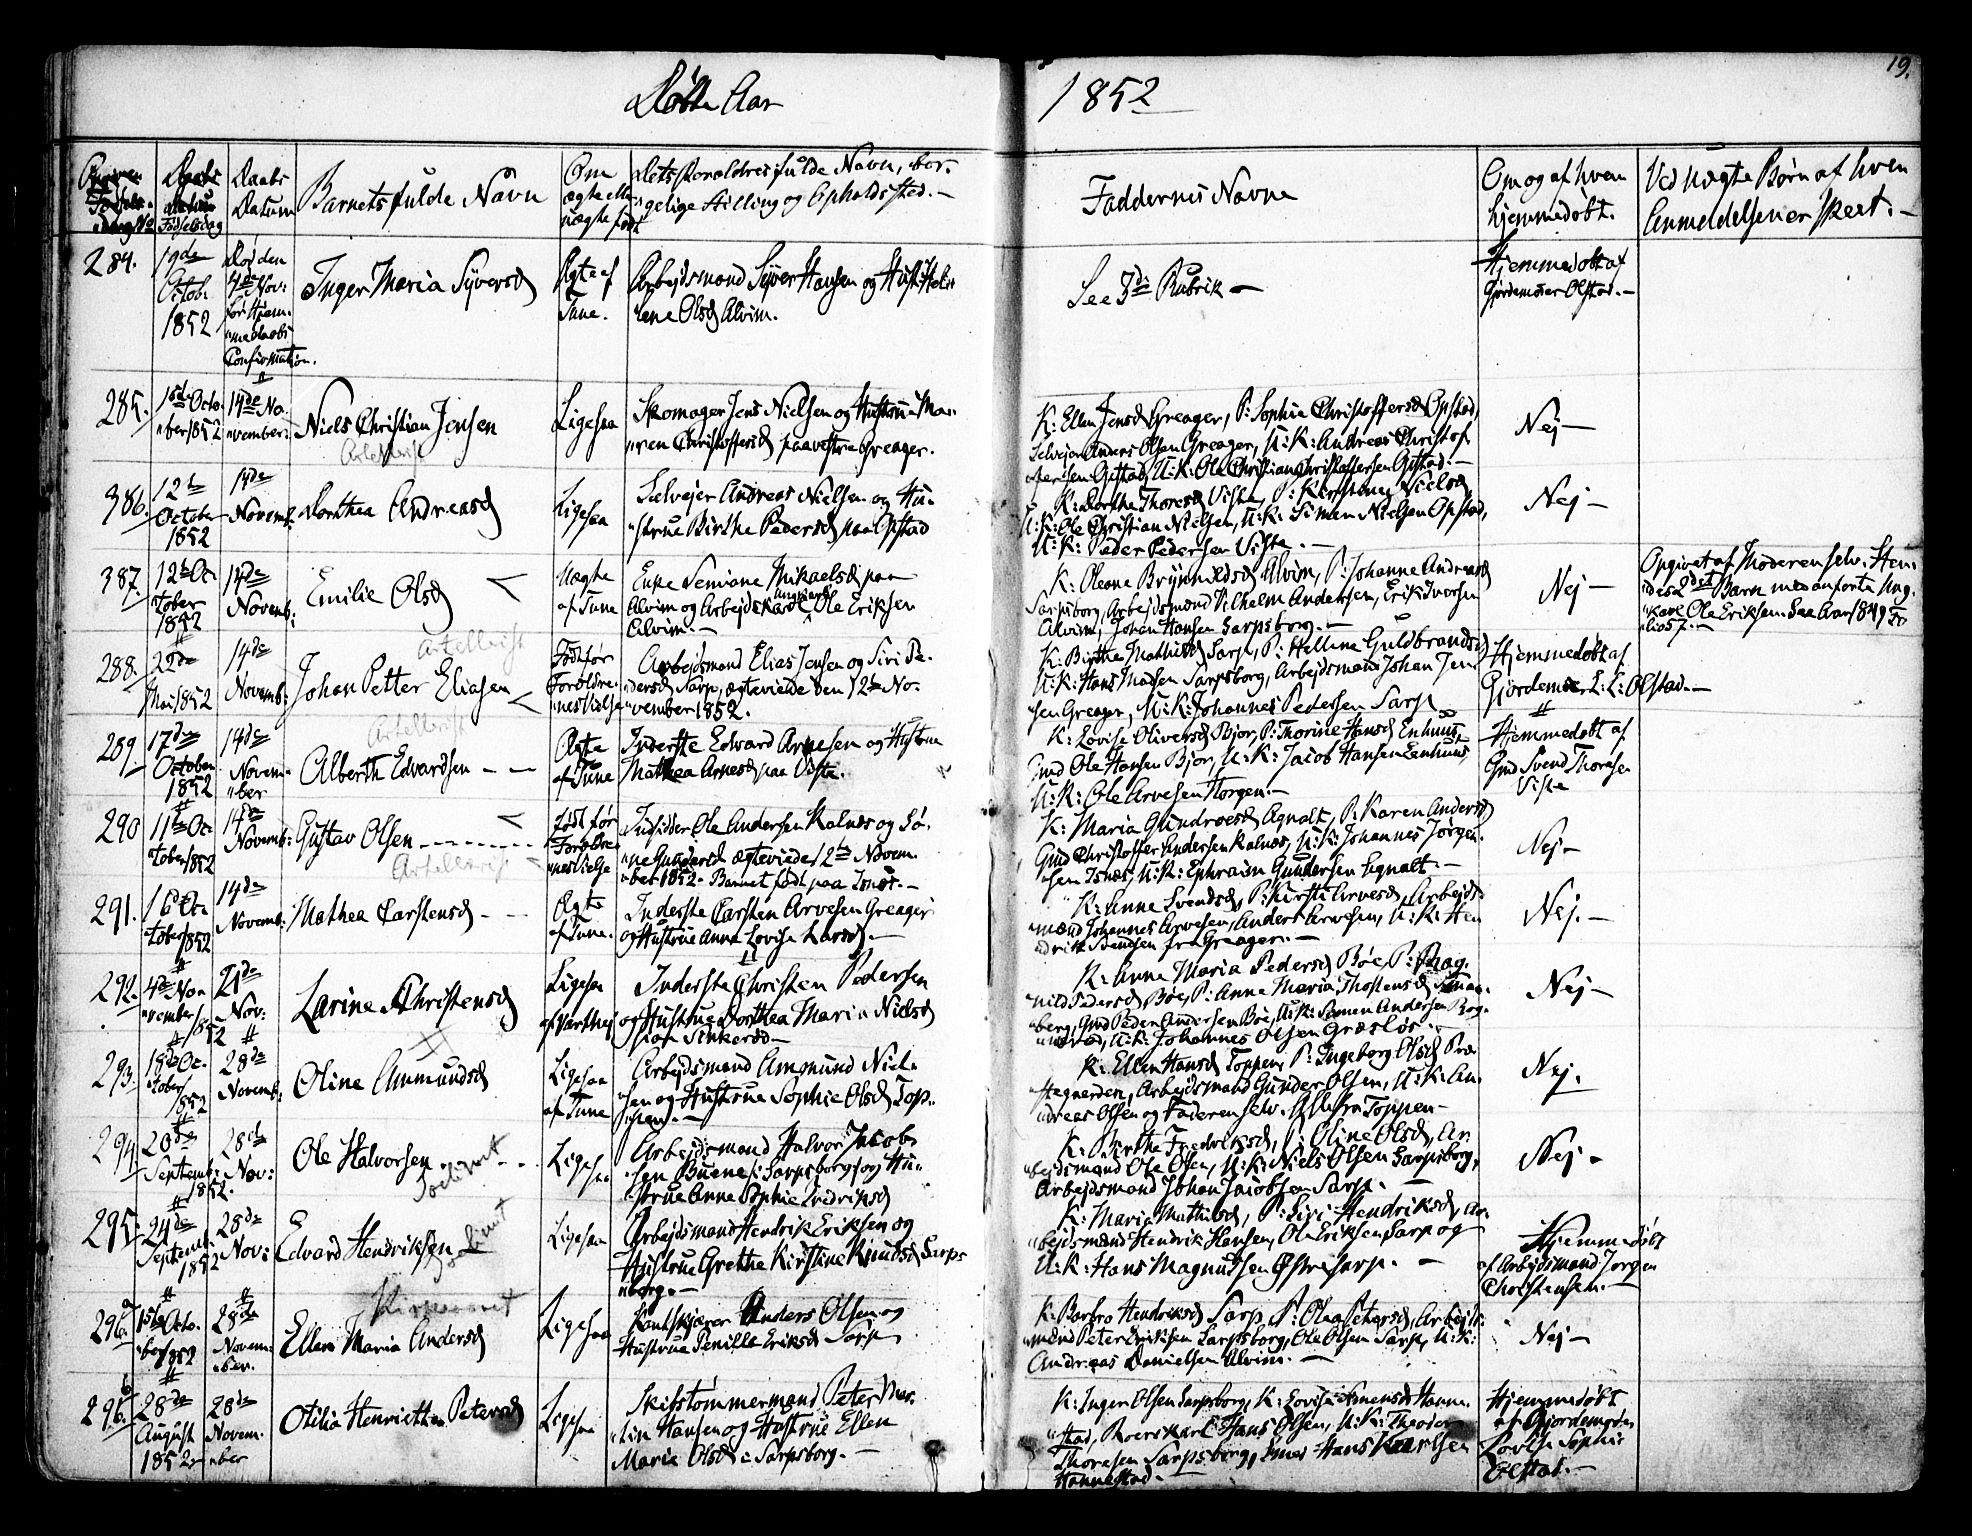 Døbte Aar
1852
19.
Daabs
Datum
Fødselsdag
Barnets fulde Navn
Om
ægte eller
uægte født
Dets Forældres fulde Navn, bor-
gelige Stilling og Opholdssted. -
Faddernes Navne
Om og af hvem
hjemmedøbt.
Ved uægte Børn af hvem
Anmeldelsen er skeet. -
284.
19de
Octob.
1852
Død den
4de Nov:
før Hjem-
medaabs
Confirmation.
Inger Maria Syversd
Ægte af
Tune.
Arbejdsmand Syver Hansen og Hust: Hele-
lene Olsd Alvim.
See 3die Rubrik -
Hjemmedøbt af
Gjordemoer Olstad. -
285.
15de Octo-
ber 1852
14de No-
vember:
Niels Christian Jensen
Ligesaa
Skomager Jens Nielsen og Hustrue Ma-
ren Christoffersd paa vestre Greager.
K: Ellen Jensd Greager, P: Sophia Christoffersd Opstad,
Selvejer Anders Olsen Greager, U: K: Andreas Christof-
fersen Opstad, U: K: Ole Christian Christoffersen Opstad. -
Nej -
386.
12te
October
1852
14de
Novemb.
Dorthea Andreasd
Ligesaa
Selvejer Andreas Nielsen og Hu-
strue Birthe Pedersd paa Opstad
K: Dorthe Thoresd Viste, P: Kirstine Nielsd
U: K: Ole Christian Nielsen, U: K: Simen Nielsen Opstad,
U: K: Peder Pedersen Viste. -
Nej -
387.
12te Oc-
tober
1852
14de
Novemb:
Emilie Olsd
Uægte
af Tune
Enke Seviane Mikaelsd paa
Alvim og Arbejdskarl Ungkarl Ole Eriksen
Alvim. -
K: Oleane Brynnildsd Alvim, P: Johanne Andreasd
Sarpsborg, Arbejdsmand Vilhelm Andersen, Erik Iversen
Alvim, Johan Hansen Sarpsborg. -
Nej -
Opgivet af Moderen selv. Hen-
des 2det Barn med anførte Ung-
karl Ole Eriksen. See Aar 1849
288.
22de
Mai 1852
14de
Novemb:
Johan Petter Eliasen
Født før
Foreldre-
nes Vielse
Arbejdsmand Elias Jensen og Siri Pe-
dersd Sarp, ægteviede den 12te No-
vember 1852.
K: Birthe Mathisd Sarp, P: Helline Guldbrandsd
U: K: Hans Madsen Sarpsborg, Arbejdsmand Johan Jen-
sen Greager, U: K: Johannes Pedersen Sarp
Hjemmedøbt af
Gjordemoer L: S: Olstad. -
289.
17de
October
1852
14de
Novem-
ber
Alberth Edvardsen - -
Ægte
af Tune
Inderste Edvard Arnesen og Hustrue
Mathea Arnesd paa Viste.
K: Lovise Oliversd Bjor, P: Thorine Hansd Enhuus,
Gmd Ole Hansen Bjor, U: K: Jacob Hansen Eenhuus
U: K: Ole Arvesen Horgen. -
Hjemmedøbt af
Gmd Svend Thoresen
Viste
290
11te Oc-
tober 1852
14de
Novemb:
Gustav Olsen
født før
Foreldre-
nes Vielse
Indsidder Ole Andersen Kalnæs og Sø-
ne Gundersd ægteviede 12te Novem-
ber 1852. Barnet født paa Isnæs. -
K: Maria Gundersd Agnalt, P: Karen Andersd
Gmd Christoffer Andersen Kalnæs, U: K: Johannes Jørgen-
sen Isnæs, U: K: Ephraim Gundersen Agnalt. -
Nej -
291.
16 Oc-
tober 1852
14de
Novemb.
Mathea Carstensd - -
Ægte
af Tune.
Inderste Carsten Arvesen Greager
og Hustrue Anna Lovise Larsd. -
K: Anne Svendsd, P: Kirsti Arvesd, Arbejds-
mænd Johannes Arvesen, Anders Arvesen, U: K: Hen-
drik Bentsen fra Greager. -
Nej. -
292.
4de No-
vember
1852
21de
Nov:
Larine Christensd
Ligesaa
af Varteig
Inderste Christen Pedersen
og Hustrue Dorthea Maria Nielsd
K: Anna Maria Pedersd Bøe, P: Rag-
nild Pedersd Bøe, P: Anne Maria Thostensd
berg, Gmd Peder Andersen Bøe, U: K: Simen Andersen
U: K: Johannes Olsen Græsløs. -
Nej -
293.
18de Oc-
tober
1852
28de
Novemb:
Oline Anmundsd
Ligesaa
af Tune
Arbejdsmand Amund Niel-
sen og Hustrue Sophie Olsd Top-
pen. -
K: Ellen Hansd Toppen, P: Ingeborg Olsd Præ-
stegaarden, Arbejdsmand Gunder Olsen, U: K: An-
dreas Olsen og Faderen selv. Alle fra Toppen -
Nej.
294
20de
Septemb:
1852.
28de
Nov:
Ole Halvorsen
Ligesaa
Arbejdsmand Halvor Jacob-
sen Buene i Sarpsborg og Hu-
strue Anne Sophie Fredriksd
K: Birthe Fredriksd, P: Oline Olsd, Ar-
bejdsmand Ole Olsen, U: K: Niels Olsen Sarpsborg,
Arbejdsmand Johan Jacobsen Sarp. -
Nej -
295.
24de
Septemb:
1852
28de
Nov:
Edvard Hendriksen
Ligesaa
Arbejdsmand Hendrik Eriksen og
Hustrue Grethe Kirstine Knudsd Sarps-
borg. -
K: Maria Mathisd, P: Siri Hendriksd, Ar-
bejdsmænd Hendrik Hansen, Ole Eriksen Sarp og
U: K: Hans Magnussen Østre Sarp. -
Hjemmedøbt
af Arbejdsmand Jørgen
Christensen. -
296. a
15de Octo-
ber 1852
28de
Novem-
ber.
Ellen Maria Andersd
Ligesaa
Kantskjærer Anders Olsen og
Hustrue Pernille Eriksd Sarp
K: Barbro Hendriksd Sarp, P: Olea Petersd, Arbejds-
mænd Peter Eriksen Sarpsborg, Ole Olsen Sarp, U: K:
Andreas Danielsen Alvim. -
Nej -
296. b
28de
August
1852
28de
Novem-
ber
Otilia Henriette Petersd
Ligesaa
Skibstømmermand Peter Mar-
tin Hansen og Hustrue Ellen
Maria Olsd i Sarpsborg. -
K: Inger Olsen Sarpsborg, K: Lovise Amensd Hanne-
stad, Roerskarl Hans Olsen, U: K: Theodor
Thoresen Sarpsborg, Hans Karlsen
Hannestad. -
Hjemmedøbt
af Gjordemoder
Lovise Sophie
Olstad. -